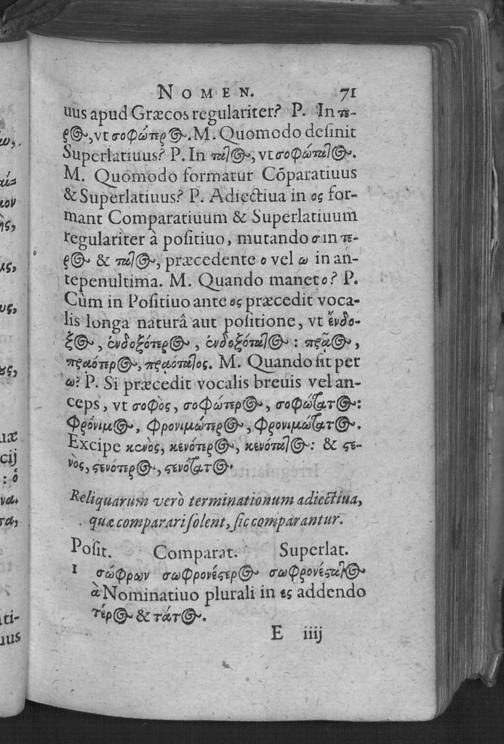 NOMEN. 71
uus apud Græcos regulariter? P. In τε-
ρος, vt σοφώτερος. M. Quomodo desinit
Superlatiuus? P. In τατος, vt σοφώτατος.
M. Quomodo formatur Cõparatiuus
& Superlatiuus? P. Adiectiua in ος for-
mant Comparatiuum & Superlatiuum
regulariter à positiuo, mutando σ in τε-
ρος & τατος, præcedente ο vel ω in an-
tepenultima. M. Quando manet ο? P.
Cùm in Positiuo ante ος præcedit voca-
lis longa naturâ aut positione, vt ἔνδο-
ξος, ἐνδοξότερος, ἐνδοξότατος: πρᾶος,
πραότερος, πραότατος. M. Quando fit per
ω? P. Si præcedit vocalis breuis vel an-
ceps, vt σοφὸς, σοφώτερος, σοφώτατος:
φρόνιμος, φρονιμώτερος, φρονιμώτατος.
Excipe κενὸς, κενότερος, κενότατος: & στε-
νὸς, στενότερος, στενότατος.
Reliquarum verò terminationum adiectiua,
quæ comparari solent, sic comparantur.
Posit. Comparat. Superlat.
1 σώφρων σωφρονέστερος σωφρονέστατος
à Nominatiuo plurali in ες addendo
τέρος & τάτος.
E iiij